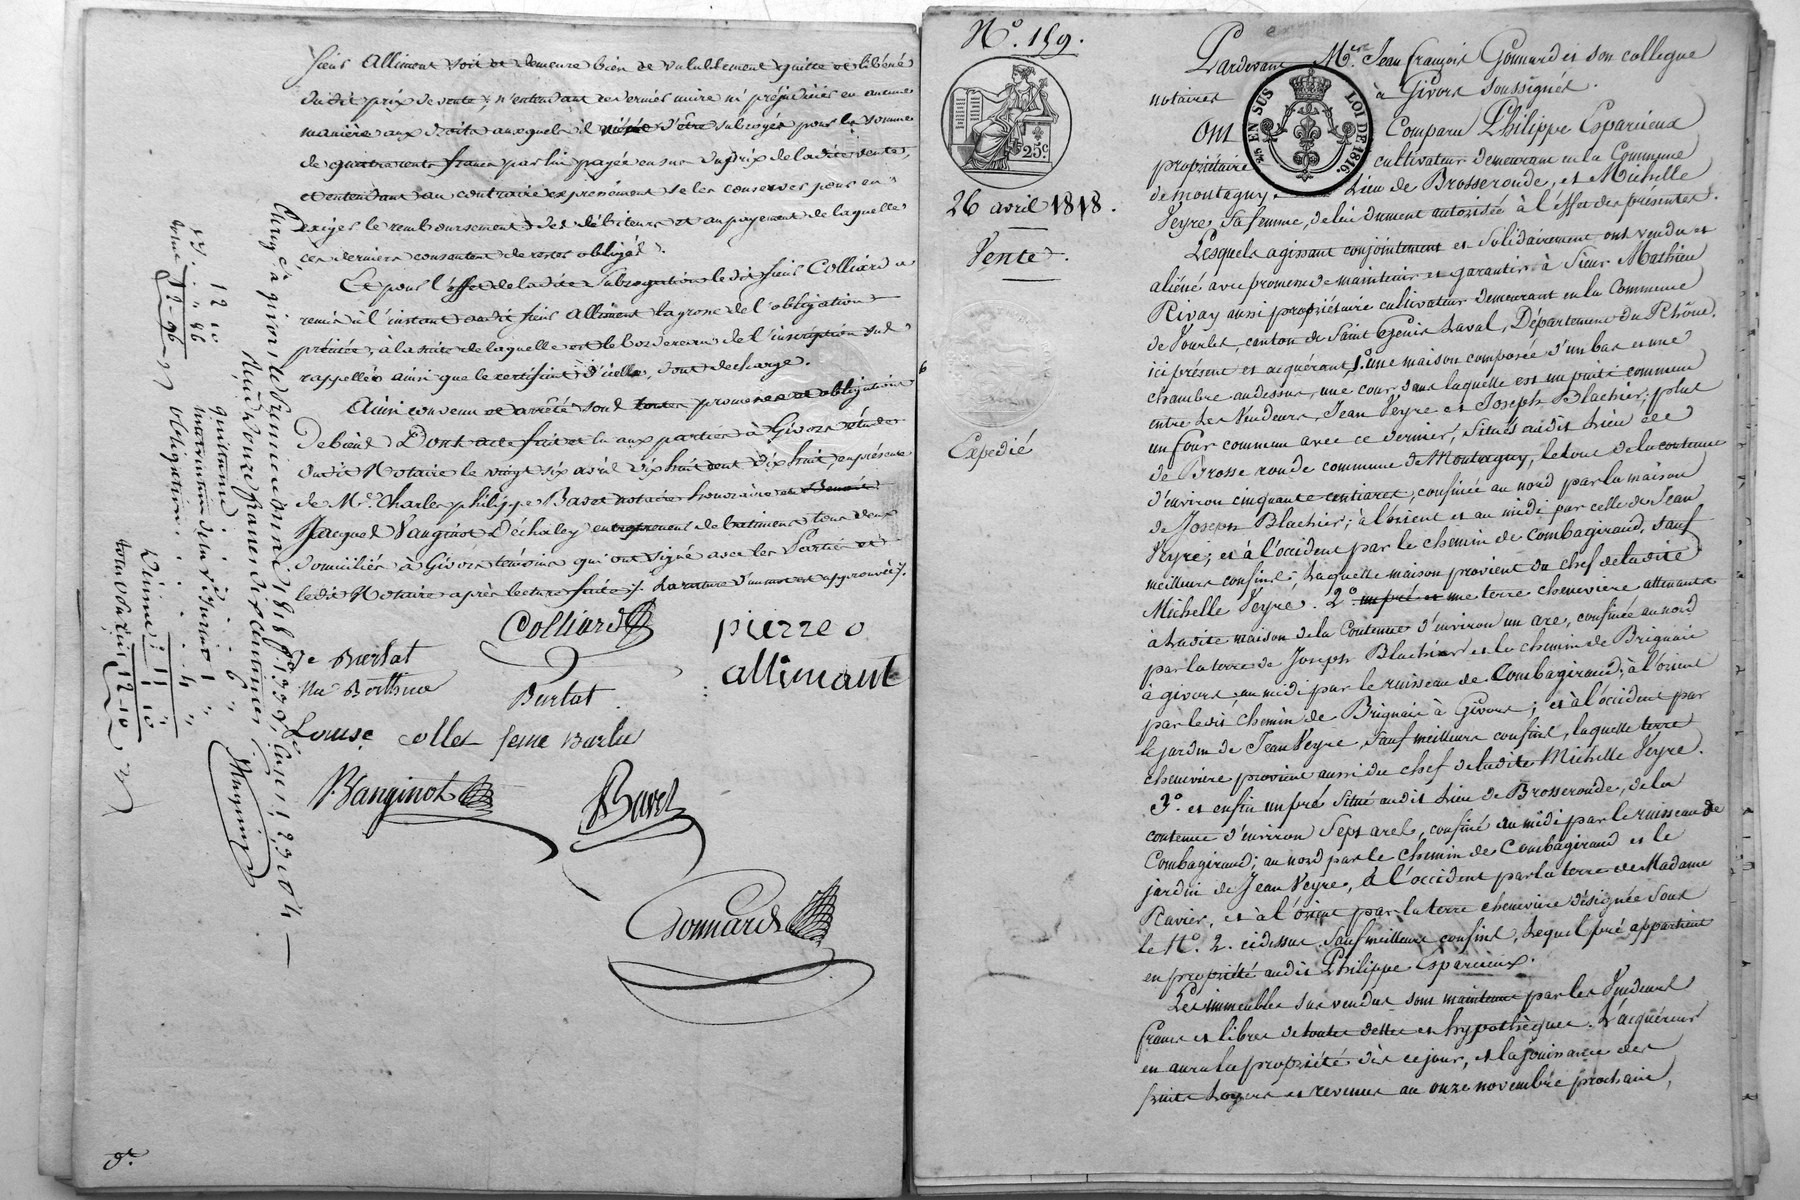 sieur Allimont soit et demeure bien et valablement quitte et libéré
dudit prix de vente; n'entendant ce dernier nuire ni préjudicier en aucune
manière aux droits auxquels il d'être subrogé pour la somme
de quatre cents francs par lui payée en sus du prix de ladite vente,
et entendant au contraire expressément se les conserver pour en
exiger le remboursement des débiteurs et au payement de laquelle
ces derniers consentent de rester obligés.
Et pour l'effet de ladite subrogation ledit sieur Colliard a
remis à l'instant audit sieur Allimont la grosse de l'obligation
précitée, à la suite de laquelle est le bordereau de l'inscription sus
rappellée ainsi que le certificat d'icelle, dont décharge.
Ainsi convenu et arrêté sous toutes promesses et obligations
de biens. Dont acte fait et lu aux parties à Givors étude
dudit Notaire le vingt six avril dix huit cent dix huit, en présence
de Mr. Charles philippe Bavet notaire honoraire et Benoit
Jacques Vanginot Déchaley entrepreneur de batiments tous deux
domiciliés à Givors témoins qui ont signé avec les Parties et
ledit Notaire après lecture faite ./. La rature d'un mot est approuvée ./.
Colliard
pierre
allimant
Je Burlat
Burlat
Louise collet feme Burla
Vanginot
Bavet
Gonnard
Enregé à givors le
Reçu douze francs dix centimes
12 10
quittance
obligation
Dixme 1 10
12-10
N.º 159.
25c
26 avril 1818.
Vente.
Expedié
EN SUS
LOI DE 1816.
Pardevant Mes. Jean françois Gonnard et son collegue
notaires à Givors soussignés.
Ont Comparu Philippe Esparcieux
propriétaire cultivateur demeurant en la Commune
de montagny lieu de Brosseronde, et Michelle
Veyre sa femme, de lui dument autorisée à l'effet des présentes.
Lesquels agissant conjointement et solidairement ont vendu et
aliéné avec promesse de maintenir et garantir à sieur Mathieu
Rivay aussi propriétaire cultivateur demeurant en la Commune
de Vourles, canton de Saint Genis Laval, Département du Rhône.
ici présent et acquérant, 1.º une maison composée d'un bas et une
chambre au dessus, une cour, dans laquelle est un puits commun
entre les Vendeurs, Jean Veyre et Joseph Blachier; plus
un four commun avec ce dernier, situés audit lieu de
de Brosse ronde commune de Montagny, le tout de la contenue
d'environ cinquante centiares, confinée au nord par la maison
de Joseph Blachier; à l'orient et au midi par celle de Jean
Veyre; et à l'occident par le chemin de Combagiraud, sauf
meilleurs confins; laquelle maison provient du chef de ladite
Michelle Veyre. 2.º un pré et une terre cheneviere attenante
à ladite maison de la Contenue d'environ un are, confinée au nord
par la terre de Joseph Blachier et le chemin de Brignais
à givors au midi par le ruisseau de Combagiraud; à l'orient
par ledit chemin de Brignais à Givors; et à l'occident par
le jardin de Jean Veyre, sauf meilleurs confins, laquelle terre
cheneviere provient aussi du chef de ladite Michelle Veyre.
3.º et enfin un pré situé audit lieu de Brosseronde, de la
contenue d'environ sept ares, confiné au midi par le ruisseau de
Combagiraud; au nord par le chemin de Combagiraud et le
jardin de Jean Veyre, à l'occident par la terre de Madame
Ravier, et à l'orient par la terre cheneviere désignée sous
le N.º 2. cidessus sauf meilleurs confins, lequel pré appartient
en propriété audit Philippe Esparcieux.
Les immeubles sus vendus sont maintenus par les Vendeurs
francs et libres de toutes dettes et hypothèques. L'acquéreur
en aura la propriété dès ce jour, et la jouissance des
fruits loyers et revenus au onze novembre prochain,